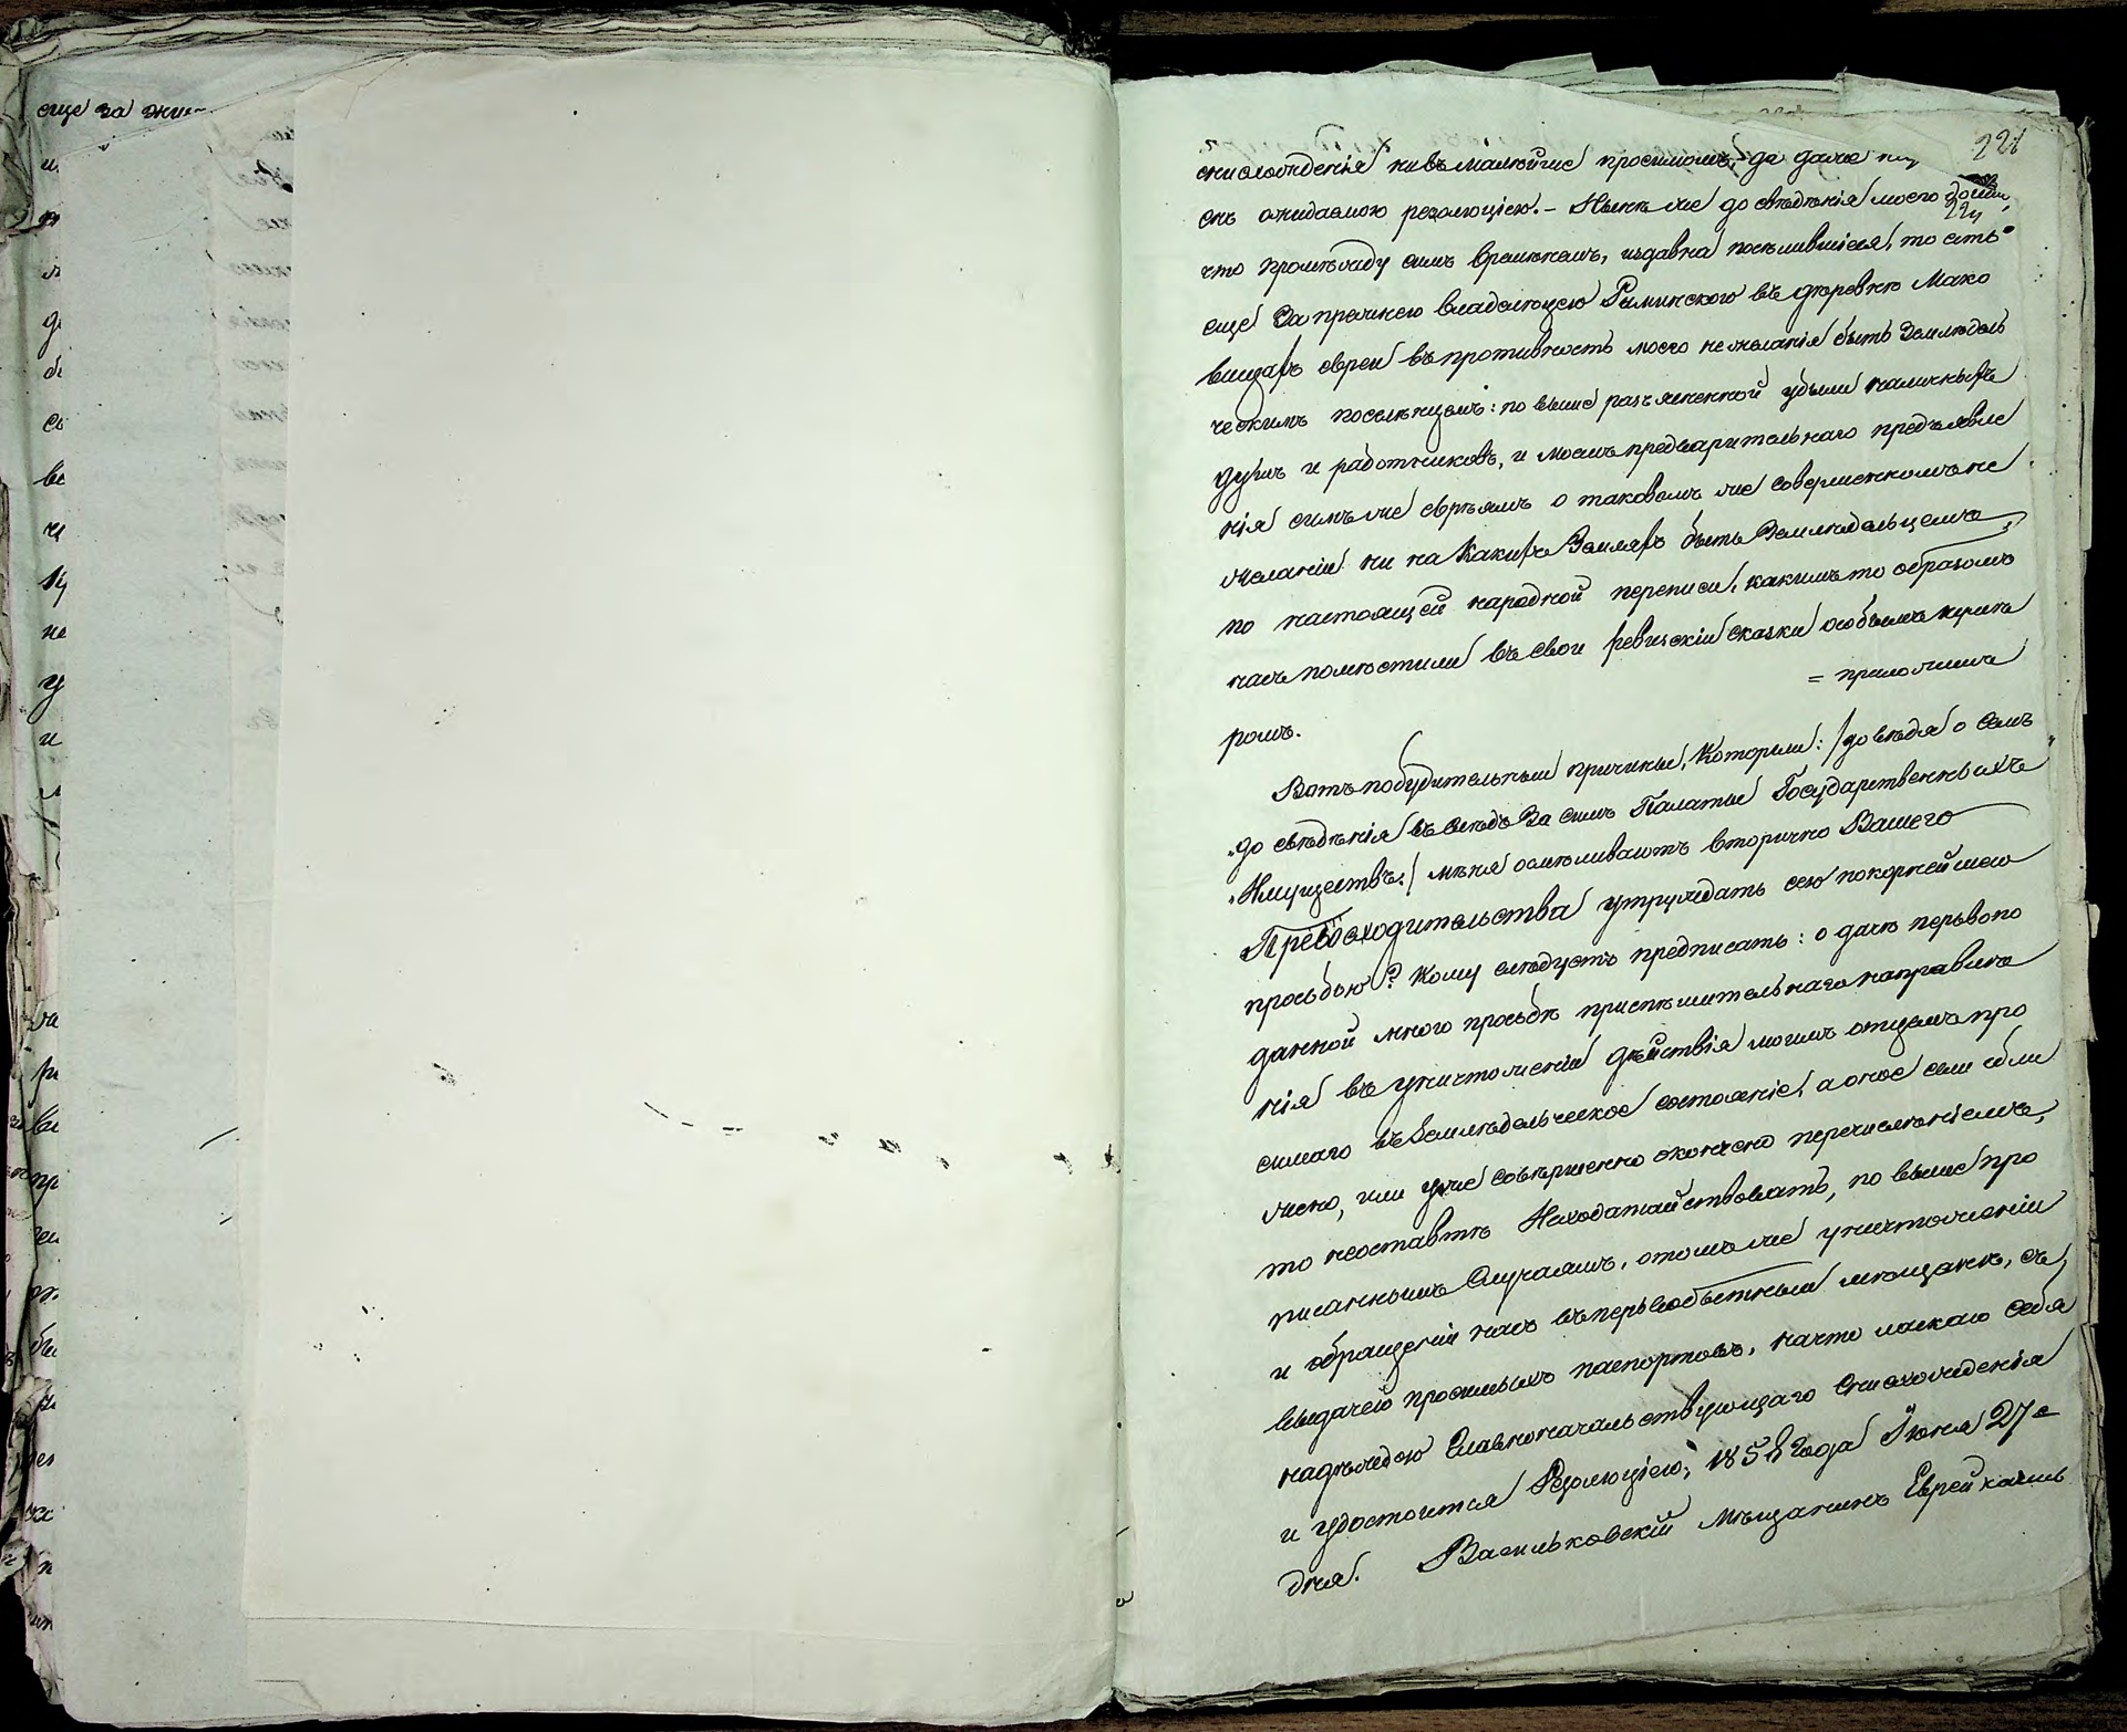 еще за
221
снисхожденія нивъ малѣйше просимомъ, да даже
снъ ожидаемою резолюціею. – Нынѣ же до свѣдѣнія моего
что промѣжду симъ врѣмѣнемъ, издавна посѣлившіеся, то есть
еще За прѣжнею владѣющею Рыминского въ дѣревню Мако
вищахъ евреи въ противность моего нежеланія быть Землѣдѣль
ческимъ поселѣнцемъ: по выше разъясненной убыли наличныхъ
душъ и работниковъ, и моимъ предварительнаго предъявле
нія симъ же евреямъ о таковомъ же совершенномъ не
желаніи ни на Какихъ Земляхъ быть Землѣдельцемъ,
по настоящей народной переписи, какимъ то образомъ
насъ помѣстили въ свои ревизскіи сказки особымъ нумѣ
= приложимъ
ромъ.
Вотъ побудительныи причины, Которыми: / доведя о семъ
„до свѣдѣнія въ слѣдъ За симъ Палаты Государственныхъ
„Имуществъ:/ мѣня осмѣливаютъ вторично Вашего
Превосходительства утруждать сею покорнѣйшею
прозьбою? Кому слѣдуетъ предписать: о дачѣ перьвопо
данной мною прозьбѣ приспѣшительнаго направлѣ
нія въ уничтоженіи дѣйствія моимъ отцемъ про
симаго въ Землѣдельческое состояніе, а оное если сбли
жено, или уже совѣршенно окончено перечислѣніемъ,
то неоставтѣ Исходатайствовать, по выше про
писаннымъ Случаямъ, отомъ же уничтоженіи
и обращеніи насъ въ перьвобытныи мѣщанѣ, съ
выдачею просимыхъ паспортовъ, начто ласкаю себя
надѣждою Главноначальствующаго Снисхожденія
и удостоится Резолюціею, 1858 Года Іюня 27 е
дня. Васильковскій Мѣщанинъ Еврей